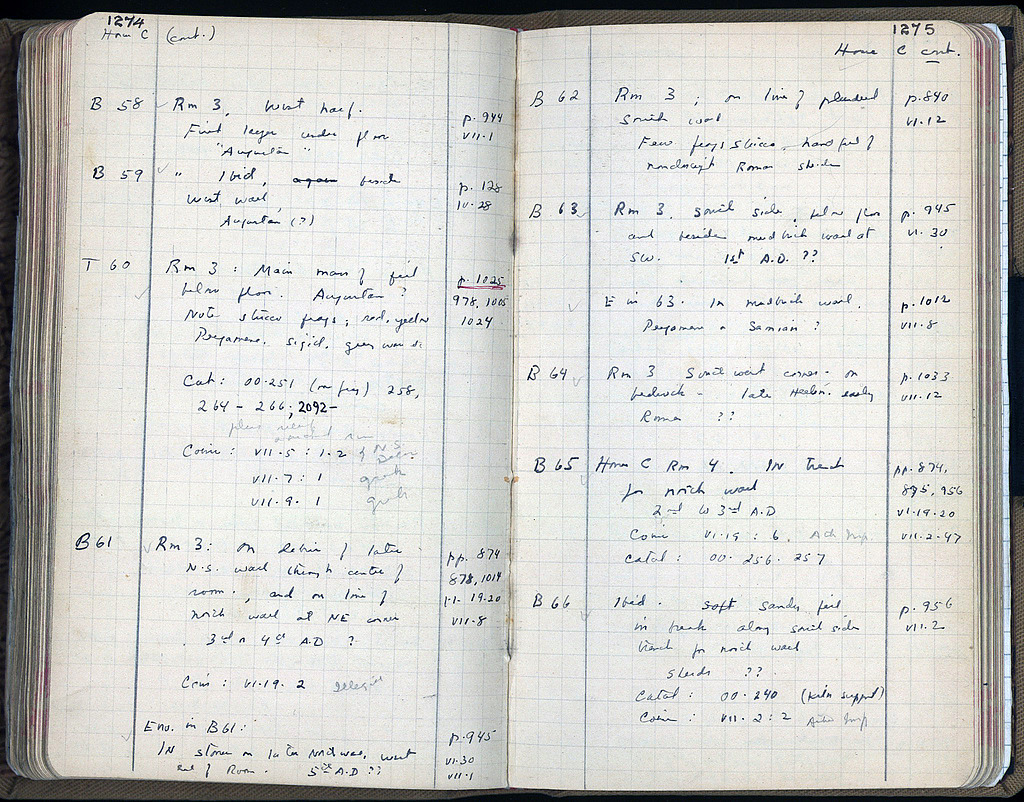 1274
House C (cont.)
B 58 Rm 3, West half. p. 944
First layer under floor VII-1
"Augustan"
B 59 " Ibid, again beside p. 128
West wall, IV-28
Augustan (?)
T 60 Rm 3: Main mass of fill p. 1025
below floor. Augustan? 978, 1005
Note stucco frags; red, yellow 1024
Pergamene, sigil.
Cat: 00.251 258,
264 - 266; 2092-
Coins: VII-5: 1-2
VII-7: 1
VII-9. 1
B 61 Rm 3: on debris of later pp. 874
N.S. wall through centre of 878, 1014
room, and on line of 19-20
north wall at NE corner VII-8
3rd or 4th A.D ?
Coin: VI-19. 2 illegible
Env. in B61: p. 945
IN stones on later North wall, west VI-30
end of Room. 5th A.D ?? VII-1
1275
House C cont.
B 62 Rm 3; on line of plundered p. 840
South wall VI-12
Few frags stucco, handful of
nondescript Roman sherds
B 63 Rm 3. South side, below floor p. 945
and beside mudbrick wall at VI. 30
SW. 1st A.D. ??
E in 63. In mudbrick wall. p. 1012
Pergamene or Samian? VII-8
B 64 Rm 3 South west corner - on p. 1033
bedrock - late Hellen. early VII-12
Roman ??
B 65 House C Rm 4. IN trench pp. 874,
for north wall 895, 956
2nd to 3rd A.D VI-19-20
Coin VI-19: 6. VII-2-47
Catal: 00. 256. 257
B 66 Ibid. soft sandy fill p. 956
in trench along south side VII-2
trench for north wall
sherds ??
Catal: 00-240 (kiln support)
Coin: VII-2: 2